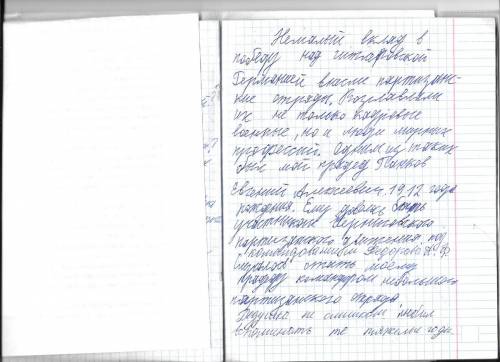 Немалый вклад в
победу над гитлеровской
Германией внесли партизан-
ские отряды. Возглавляли
их не только кадровые
военные, но и люди мирных
профессий. Одним из таких
был мой прадед Панков
Евгений Алексеевич 1912 года
рождения. Ему довелось быть
участником Черниговского
партизанского движения под
командованием Федорова А.Ф
стать моему
прадеду командиром небольшого
партизанского отряда.
Дедушка не слишком любил
вспоминать те тяжелые годы.